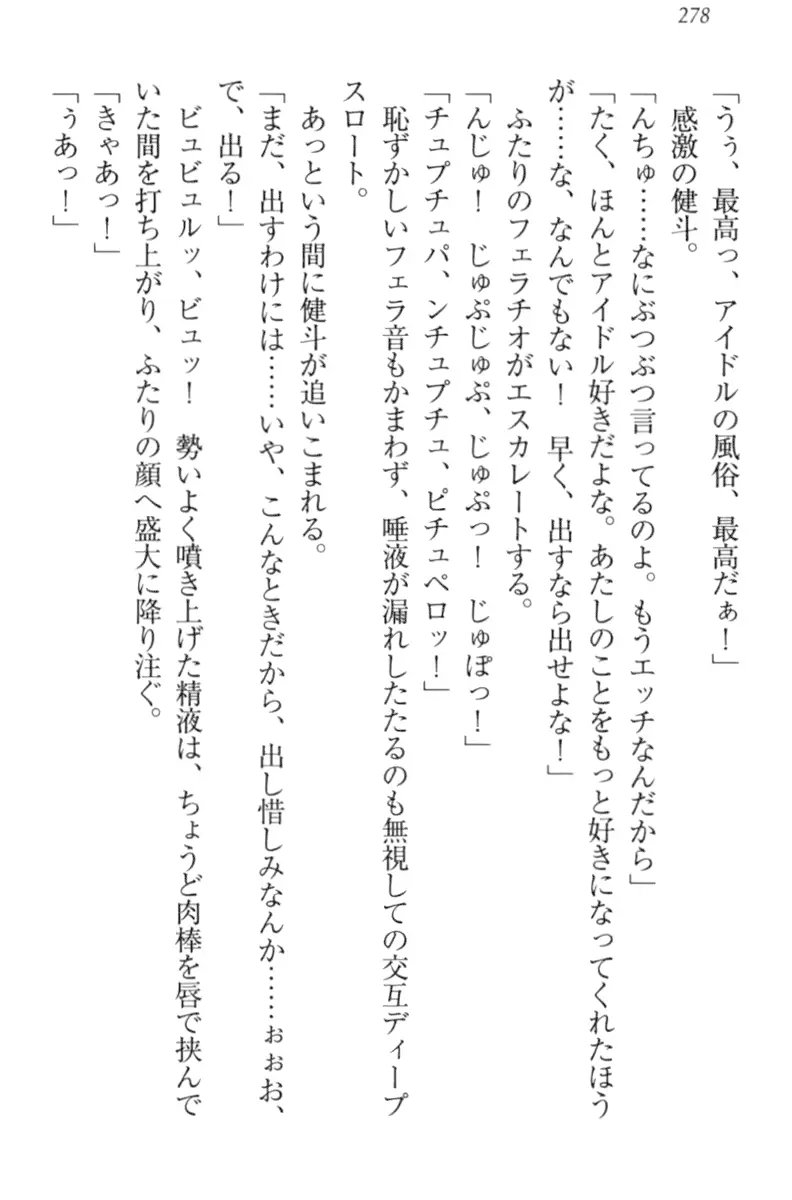 278
「うぅ、最高っ、アイドルの風俗、最高だぁ！」
感激の健斗。
「んちゅ……なにぶつぶつ言ってるのよ。もうエッチなんだから」
「たく、ほんとアイドル好きだよな。あたしのことをもっと好きになってくれたほう
が……な、なんでもない！　早く、出すなら出せよな！」
ふたりのフェラチオがエスカレートする。
「んじゅ！　じゅぷじゅぷ、じゅぷっ！　じゅぽっ！」
「チュプチュパ、ンチュプチュ、ピチュペロッ！」
恥ずかしいフェラ音もかまわず、唾液が漏れしたたるのも無視しての交互ディープ
スロート。
あっという間に健斗が追いこまれる。
「まだ、出すわけには……いや、こんなときだから、出し惜しみなんか……ぉぉお、
で、出る！」
ビュビュルッ、ビュッ！　勢いよく噴き上げた精液は、ちょうど肉棒を唇で挟んで
いた間を打ち上がり、ふたりの顔へ盛大に降り注ぐ。
「きゃあっ！」
「ぅあっ！」